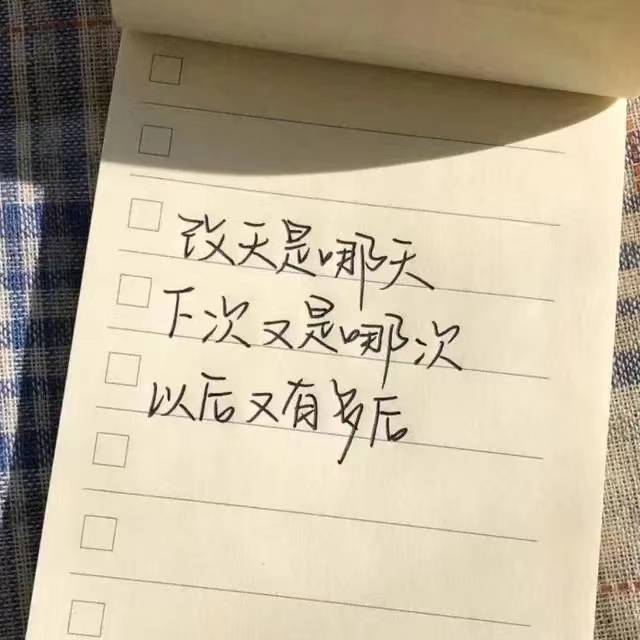 改天是哪天
下次又是哪次
以后又有多后